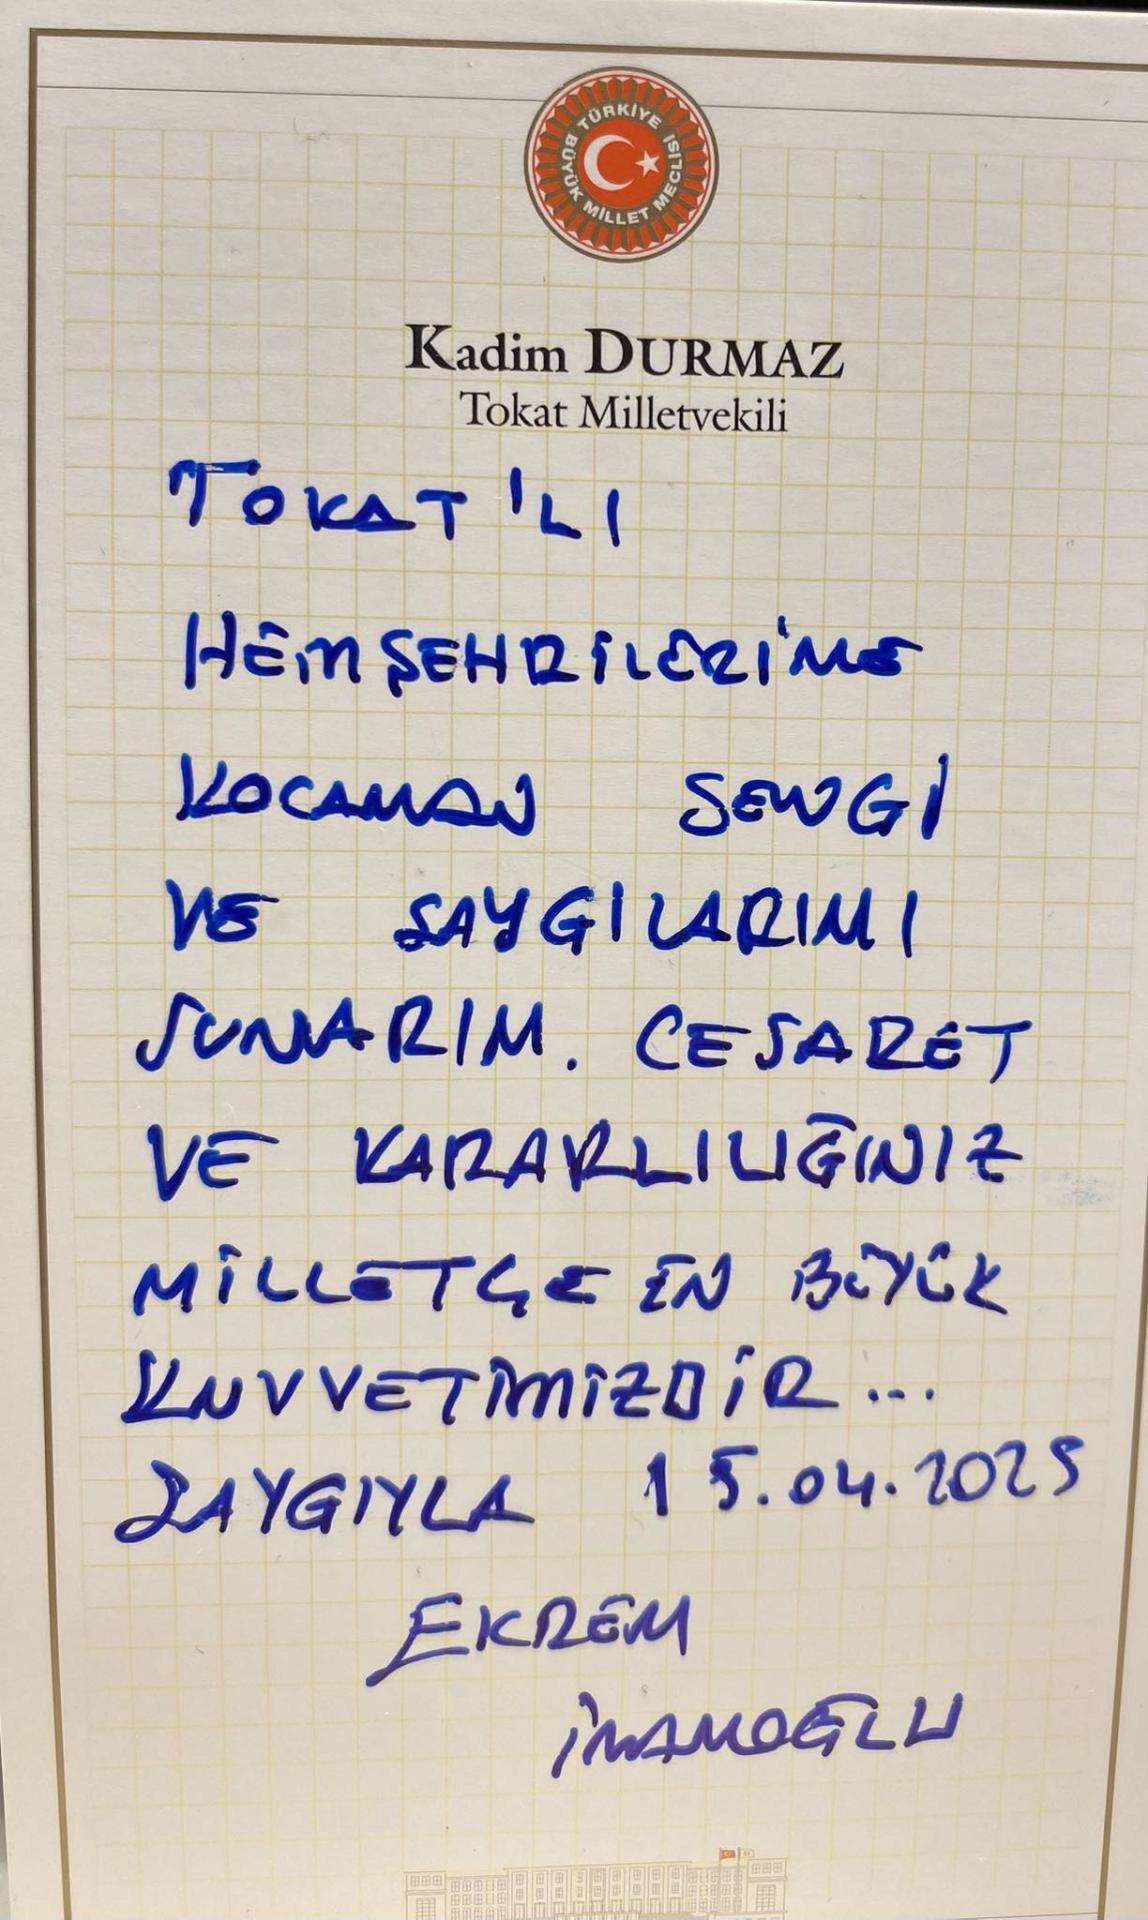 TÜRKİYE BÜYÜK MİLLET MECLİSİ
Kadim DURMAZ
Tokat Milletvekili
TOKAT'LI
HEMŞEHRİLERİME
KOCAMAN SEVGİ
VE SAYGILARIMI
SUNARIM. CESARET
VE KARARLILIĞINIZ
MİLLETÇE EN BÜYÜK
KUVVETİMİZDİR...
SAYGIYLA 15.04.2025
EKREM
İMAMOĞLU